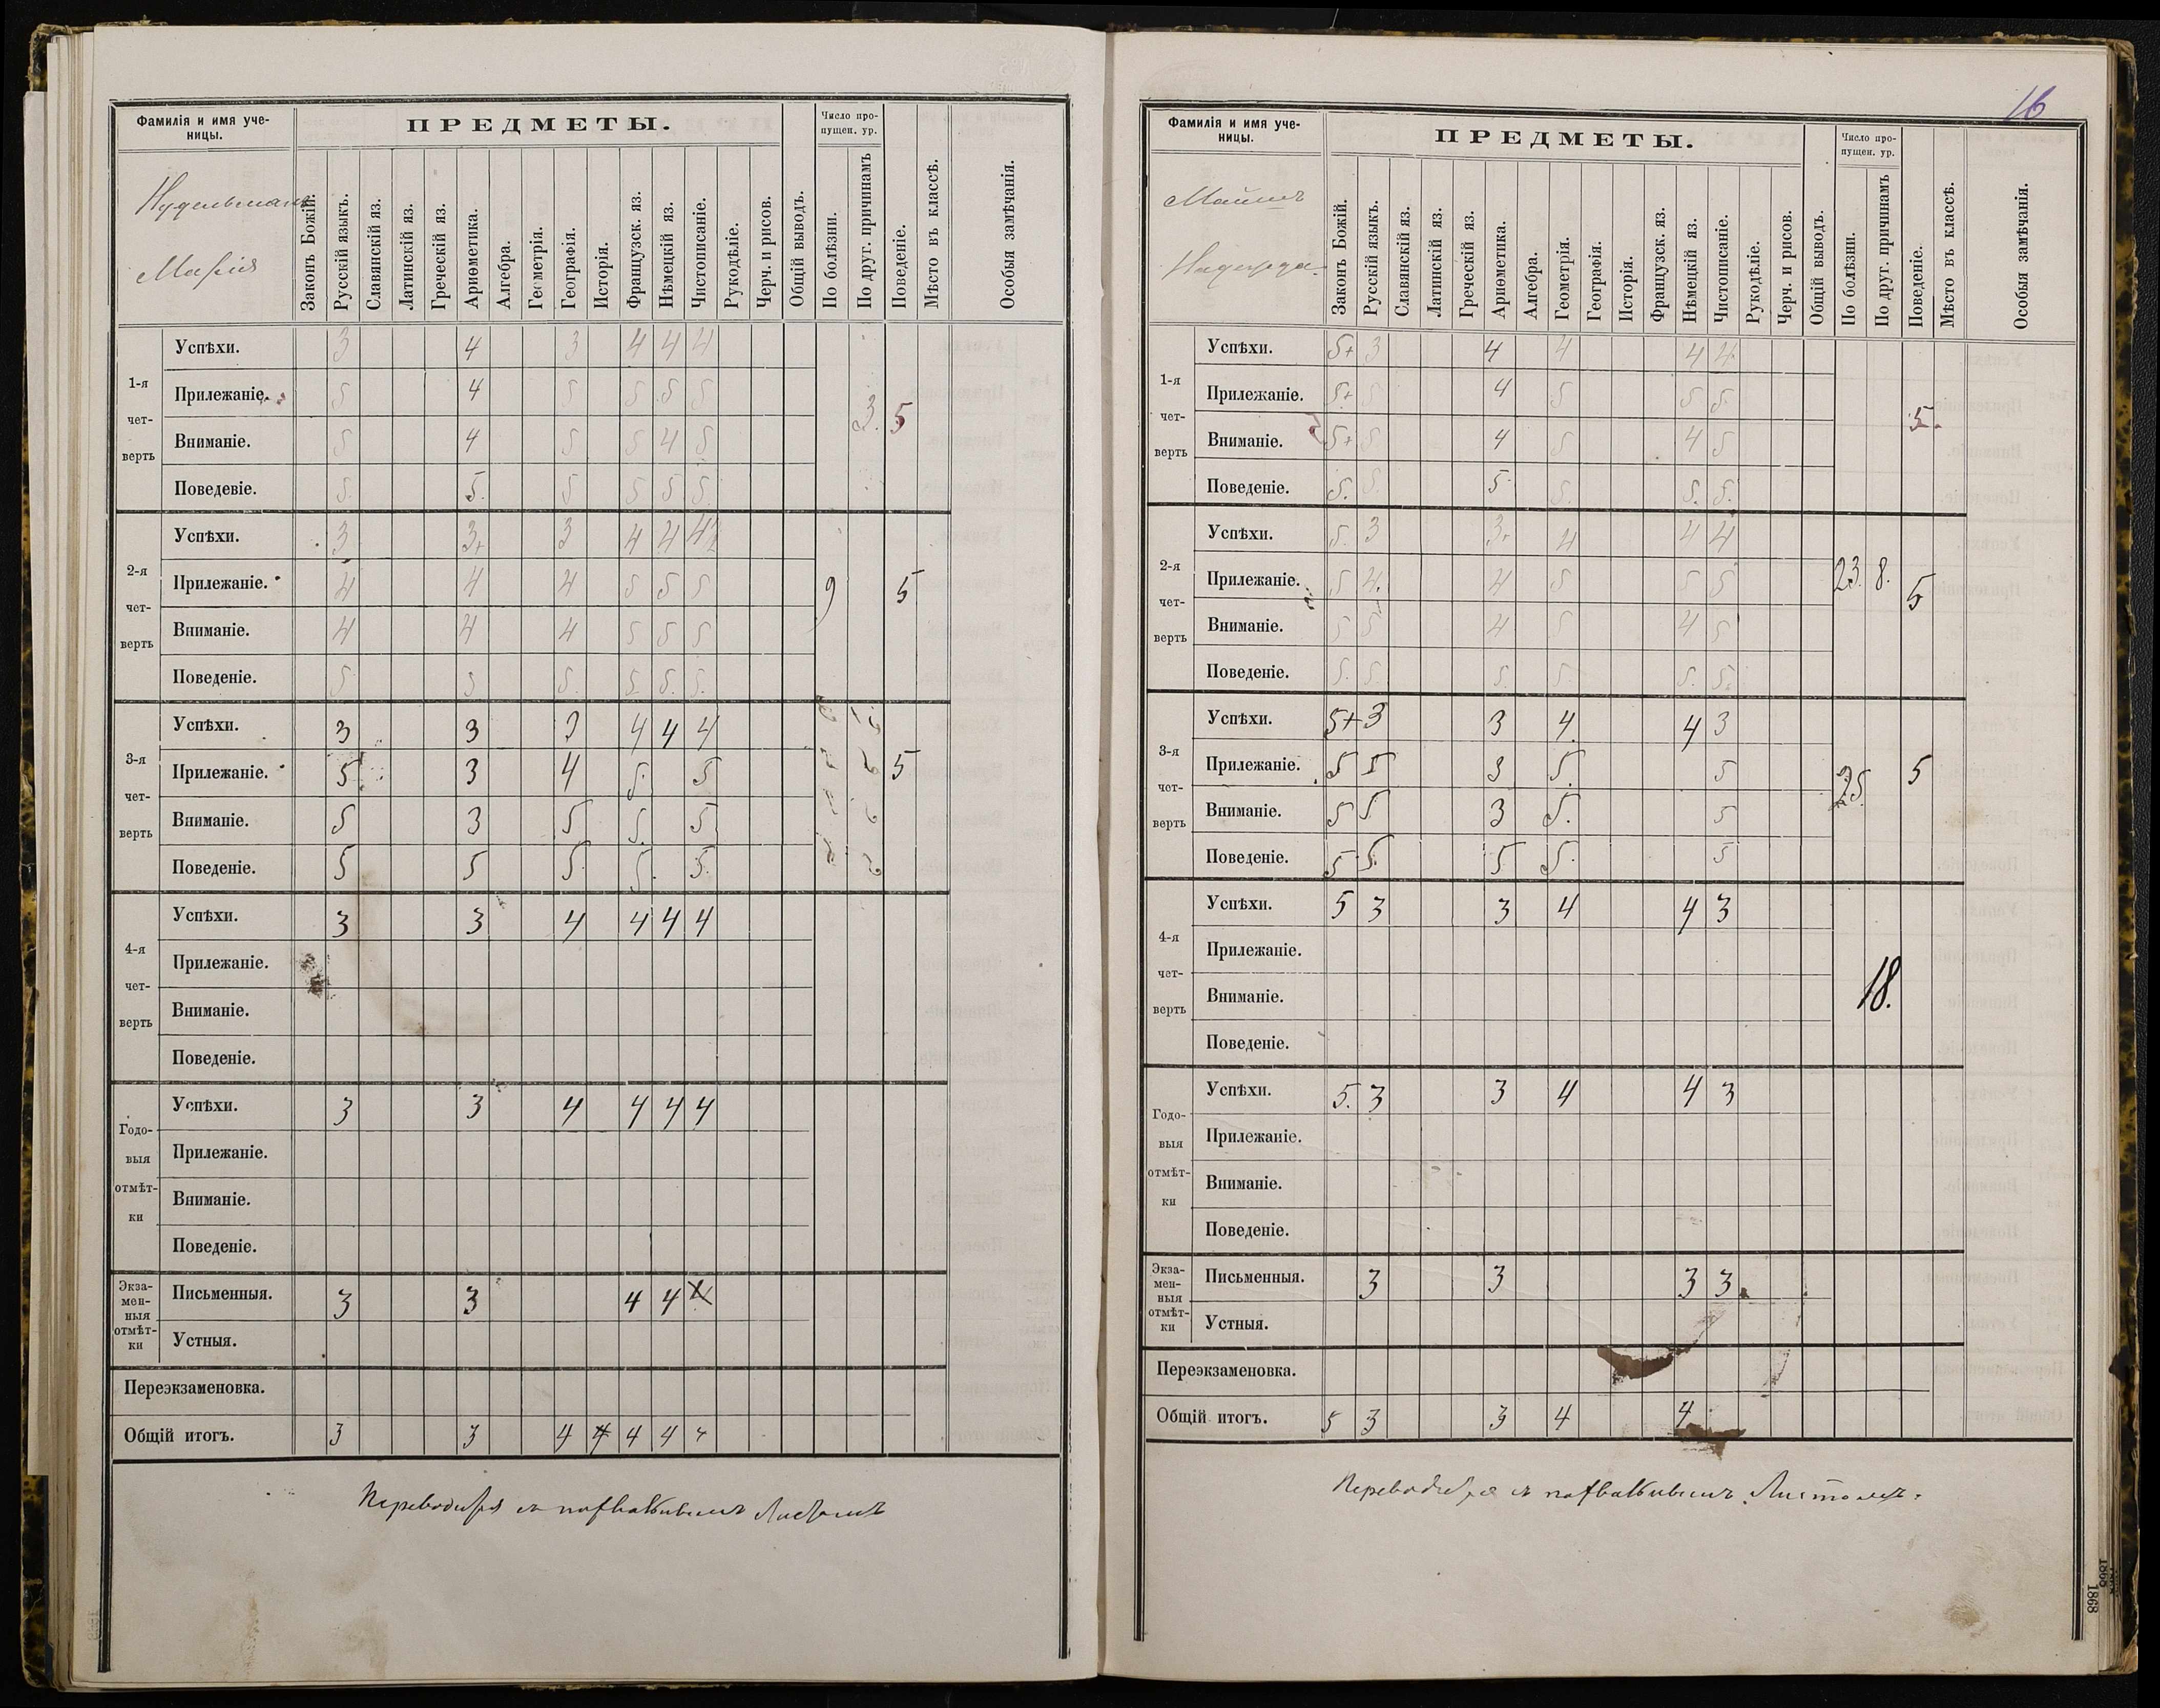 Фамилія и имя уче-
ницы.
ПРЕДМЕТЫ.
Число про-
пущен. ур.
Нудельманъ
Марія
Законъ Божій.
Русскій языкъ.
Славянскій яз.
Латинскій яз.
Греческій яз.
Ариѳметика.
Алгебра.
Геометрія.
Географія.
Исторія.
Французск. яз.
Нѣмецкій яз.
Чистописаніе.
Рукодѣліе.
Черч. и рисов.
Общій выводъ.
По болѣзни.
По друг. причинамъ
Поведеніе.
Мѣсто въ классѣ.
Особыя замѣчанія.
1-я чет-верть
Успѣхи. 3 4 3 4 4 4
Прилежаніе. 5 4 5 5 5 5 3. 5
Вниманіе. 5 4 5 5 4 5
Поведевіе. 5. 5. 5 5 5 5
2-я чет-верть
Успѣхи. 3 3+ 3 4 4 4½
Прилежаніе. 4 4 4 5 5 5 9 5
Вниманіе. 4 4 4 5 5 5
Поведеніе. 5 5 5. 5. 5. 5.
3-я чет-верть
Успѣхи. 3 3 3 4 4 4
Прилежаніе. 5 3 4 5. 5 5
Вниманіе. 5 3 5 5. 5
Поведеніе. 5 5 5. 5. 5.
4-я чет-верть
Успѣхи. 3 3 4 4 4 4
Прилежаніе.
Вниманіе.
Поведеніе.
Годо-выя отмѣт-ки
Успѣхи. 3 3 4 4 4 4
Прилежаніе.
Вниманіе.
Поведеніе.
Экза-мен-ныя отмѣт-ки
Письменныя. 3 3 4 4 4
Устныя.
Переэкзаменовка.
Общій итогъ. 3 3 4 4 4 4 4
Переводится съ похвальнымъ листомъ
16
Фамилія и имя уче-
ницы.
ПРЕДМЕТЫ.
Число про-
пущен. ур.
Надежда
Законъ Божій.
Русскій языкъ.
Славянскій яз.
Латинскій яз.
Греческій яз.
Ариѳметика.
Алгебра.
Геометрія.
Географія.
Исторія.
Французск. яз.
Нѣмецкій яз.
Чистописаніе.
Рукодѣліе.
Черч. и рисов.
Общій выводъ.
По болѣзни.
По друг. причинамъ
Поведеніе.
Мѣсто въ классѣ.
Особыя замѣчанія.
1-я чет-верть
Успѣхи. 5+ 3 4 4 4 4
Прилежаніе. 5+ 5 4 5 5 5.
Вниманіе. 5+ 5 4 5 4 5 5.
Поведеніе. 5. 5. 5 5. 5. 5.
2-я чет-верть
Успѣхи. 5. 3 3+ 4 4 4
Прилежаніе. 5 4. 4 5 5 5 23. 8. 5
Вниманіе. 5 5 4 5 4 5
Поведеніе. 5. 5 5. 5. 5. 5.
3-я чет-верть
Успѣхи. 5+ 3 3 4. 4 3
Прилежаніе. 5 5 3 5. 5 25. 5
Вниманіе. 5 5. 3 5. 5
Поведеніе. 5 5. 5 5. 5
4-я чет-верть
Успѣхи. 5 3 3 4 4 3
Прилежаніе.
Вниманіе. 18.
Поведеніе.
Годо-выя отмѣт-ки
Успѣхи. 5. 3 3 4 4 3
Прилежаніе.
Вниманіе.
Поведеніе.
Экза-мен-ныя отмѣт-ки
Письменныя. 3 3 3 3
Устныя.
Переэкзаменовка.
Общій итогъ. 5 3 3 4 4
Переводится съ похвальнымъ листомъ.
1868